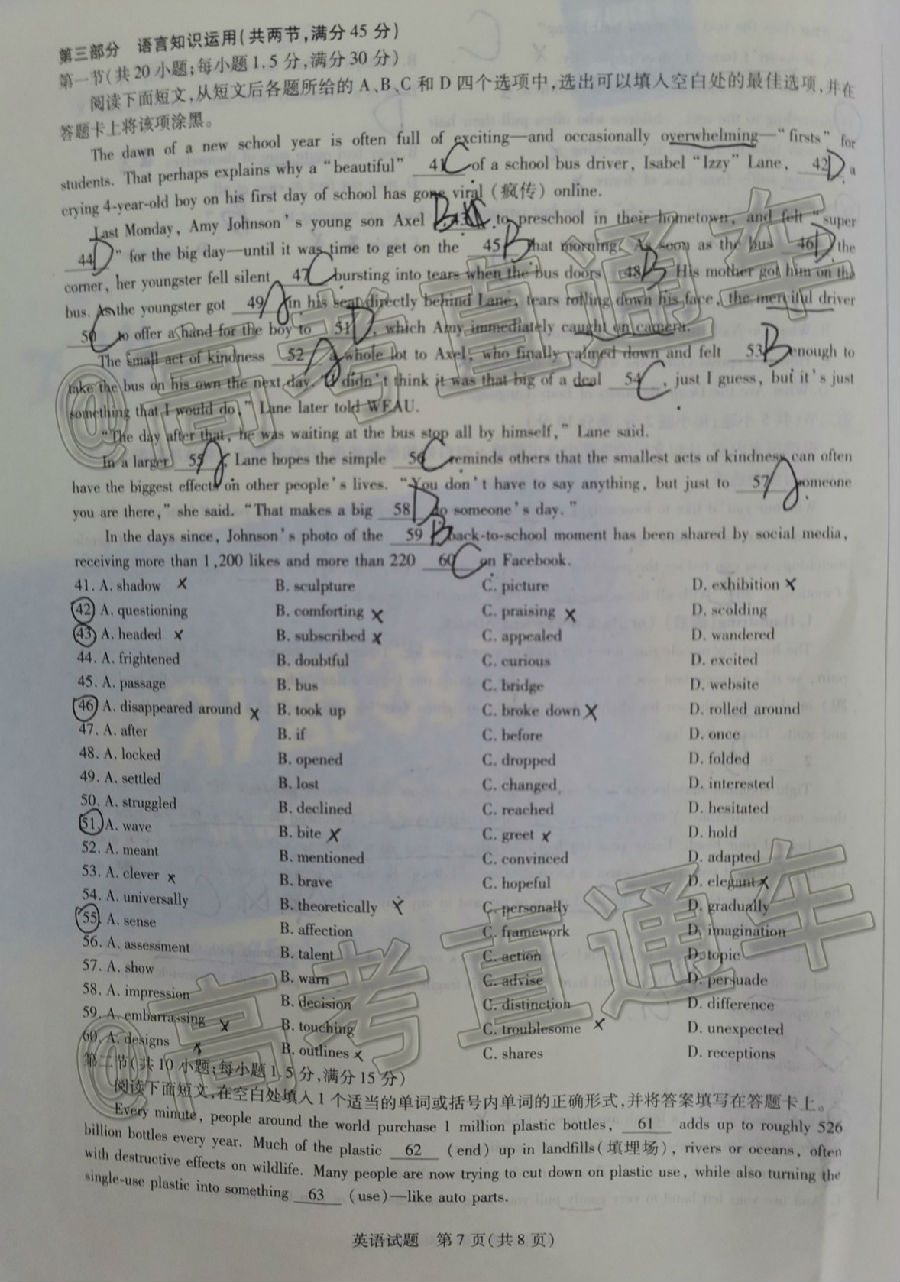 第三部分 语言知识运用(共两节,满分 45 分)
第一节(共 20 小题;每小题 1. 5 分,满分 30 分)
阅读下面短文,从短文后各题所给的 A、B、C 和 D 四个选项中,选出可以填入空白处的最佳选项,并在
答题卡上将该项涂黑。
The dawn of a new school year is often full of exciting—and occasionally overwhelming—“firsts” for
students. That perhaps explains why a “beautiful” 41 C of a school bus driver, Isabel “Izzy” Lane, 42 D a
crying 4-year-old boy on his first day of school has gone viral (疯传) online.
Last Monday, Amy Johnson’s young son Axel to preschool in their hometown, and felt “super
44 D ” for the big day—until it was time to get on the 45 B that morning. As soon as the bus 46 D the
corner, her youngster fell silent 47 C bursting into tears when the bus doors 48 B His mother got him on the
bus. As the youngster got 49 A in his seat directly behind Lane, tears rolling down his face, the merciful driver
50 C to offer a hand for the boy to 51 D , which Amy immediately caught on camera.
The small act of kindness 52 A a whole lot to Axel, who finally calmed down and felt 53 B enough to
take the bus on his own the next day. “I didn’t think it was that big of a deal 54 C , just I guess, but it’s just
something that I would do,” Lane later told WEAU.
“The day after that, he was waiting at the bus stop all by himself,” Lane said.
In a larger 55 A , Lane hopes the simple 56 C reminds others that the smallest acts of kindness can often
have the biggest effects on other people’s lives. “You don’t have to say anything, but just to 57 A someone
you are there,” she said. “That makes a big 58 D to someone’s day.”
In the days since, Johnson’s photo of the 59 B back-to-school moment has been shared by social media,
receiving more than 1,200 likes and more than 220 60 C on Facebook.
41. A. shadow × B. sculpture C. picture D. exhibition ×
42 A. questioning B. comforting × C. praising × D. scolding
43 A. headed × B. subscribed × C. appealed D. wandered
44. A. frightened B. doubtful C. curious D. excited
45. A. passage B. bus C. bridge D. website
46 A. disappeared around × B. took up C. broke down × D. rolled around
47. A. after B. if C. before D. once
48. A. locked B. opened C. dropped D. folded
49. A. settled B. lost C. changed D. interested
50. A. struggled B. declined C. reached D. hesitated
51 A. wave B. bite × C. greet × D. hold
52. A. meant B. mentioned C. convinced D. adapted
53. A. clever × B. brave C. hopeful D. elegant ×
54. A. universally B. theoretically × C. personally D. gradually
55. A. sense B. affection C. framework D. imagination
56. A. assessment B. talent C. action D. topic
57. A. show B. warn C. advise D. persuade
58. A. impression B. decision C. distinction D. difference
59. A. embarrassing × B. touching C. troublesome × D. unexpected
60. A. designs × B. outlines × C. shares D. receptions
第二节(共 10 小题;每小题 1. 5 分,满分 15 分)
阅读下面短文,在空白处填入 1 个适当的单词或括号内单词的正确形式,并将答案填写在答题卡上。
Every minute, people around the world purchase 1 million plastic bottles, 61 adds up to roughly 526
billion bottles every year. Much of the plastic 62 (end) up in landfills(填埋场), rivers or oceans, often
with destructive effects on wildlife. Many people are now trying to cut down on plastic use, while also turning the
single-use plastic into something 63 (use)—like auto parts.
英语试题 第 7 页(共 8 页)
@高考直通车
@高考直通车